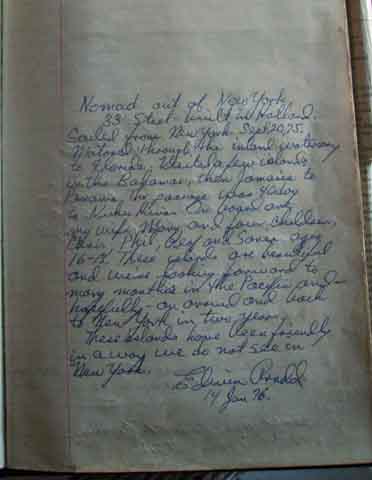 Nomad out of New York
33' Steel built in Holland.
Sailed from New York Sept 20, 75.
Motored through the inland waterway
to Florida, Visited a few islands
in the Bahamas, then Jamaica to
Panama, the passage was 9 days
to Nuku Hiva. On board are
my wife, Mary, and four children,
Phil, and ages
16-12. These people are beautiful
and we're looking forward to
many months in the Pacific and -
hopefully - on around and back
to New York in two years.
These Islands have been friendly
in a way we do not see in
New York.
Edwin Arnold
14 Jan 76.